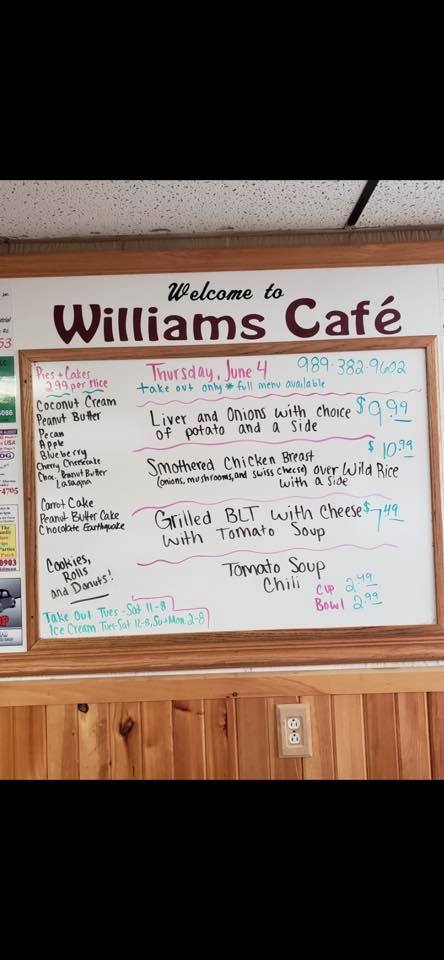 Welcome to
Williams Café
Pies + Cakes
2.99 per slice
Coconut Cream
Peanut Butter
Pecan
Apple
Blueberry
Cherry Cheesecake
Choc. Peanut Butter
Lasagna
Carrot Cake
Peanut Butter Cake
Chocolate Earthquake
Cookies,
Rolls
and Donuts!
Take Out Tues-Sat 11-8
Ice Cream Tues-Sat 12-8, Su+Mon 2-8
Thursday, June 4
989-382-9602
take out only * full menu available
Liver and Onions with choice $9.99
of potato and a side
$10.99
Smothered Chicken Breast
(onions, mushrooms, and swiss cheese) over Wild Rice
with a side
Grilled BLT with Cheese $7.49
with Tomato Soup
Tomato Soup
Chili
Cup 2.49
Bowl 2.99
53
8086
USA
4705
The
0903